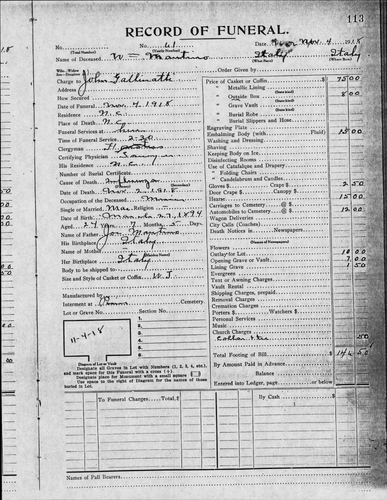 113
RECORD OF FUNERAL.
No. No. 61 Date Nov. 4 1918
(Total Number) (Yearly Number)
Name of Deceased Wm Martino Italy Italy
(What State) (Where Born)
Order Given by
Charge to John Gallinatti
Address
How Secured
Date of Funeral Nov. 4 1918
Residence N. C.
Place of Death N. C.
Funeral Services at
Time of Service 2-30
Clergyman
Certifying Physician
His Residence N. C.
Number of Burial Certificate
Cause of Death Influenza
Date of Death Nov. 2 1918
Occupation of the Deceased Miner
Single or Married Religion
Date of Birth March 27, 1894
Aged 24 Years, 7 Months, 5 Days
Name of Father Martino
His Birthplace Italy
Name of Mother
Her Birthplace Italy
Body to be shipped to
Size and Style of Casket or Coffin
Manufactured by
Interment at Cemetery
Lot or Grave No.
11-4-18
1
2
3
4
5
6
Diagram of Lot or Vault
Designate all Graves in Lot with Numbers (1, 2, 3, 4, etc.,
and mark space for this Funeral with a cross (+).
Designate place for Monument with a small square
Use space to right of Diagram for the names of those
buried in Lot.
Price of Casket or Coffin $ 75 00
" Metallic Lining
" Outside Box 8 00
" Grave Vault
" Burial Robe
" Burial Slippers and Hose
Engraving Plate
Embalming Body (with Fluid) 15 00
Washing and Dressing
Shaving
Keeping Body on Ice
Disinfecting Rooms
Use of Catafalque and Drapery
" Folding Chairs
" Candelabrum and Candles
Gloves $ Crape $ 2 50
Door Crape $ Canopy $
Hearse 15 00
Carriages to Cemetery @ $
Automobiles to Cemetery @ $ 12 00
Wagon Deliveries
City Calls (Coaches)
Death Notices in Newspapers
(Names of Newspapers)
Flowers
Outlay for Lot 10 00
Opening Grave or Vault 7 00
Lining Grave 1 50
Evergreen
Tent or Awning Charges
Vault Rental
Shipping Charges, prepaid
Removal Charges
Cremation Charges
Porters $ Watchers $
Personal Services
Music
Church Charges
Collar & tie 50
Total Footing of Bill $ 146 50
By Amount Paid in Advance
Balance
Entered into Ledger, page or below.
To Funeral Charges $ By Cash $
Names of Pall Bearers